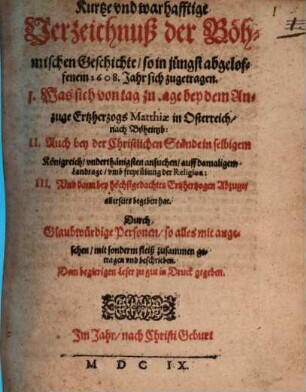 Kurtze vnd warhafftige
Verzeichnuß der Böh-
mischen Geschichte / so in jüngst abgelof-
fenem 1608. Jahr sich zugetragen.
I. Was sich von tag zu tage bey dem An-
zuge Ertzherzogs Matthiæ in Osterreich /
nach Böheimb:
II. Auch bey der Christlichen Stände in selbigem
Königreich / vnderthänigsten ansuchen / auff damaligem
Landtage / vmb freystellung der Religion:
III. Vnd dann bey höchstgedachts Ertzherzogen Abzuge /
allerseits begeben hat.
Durch
Glaubwürdige Personen / so alles mit ange-
sehen / mit sonderm fleiß zusammen ge-
tragen vnd beschrieben.
Dem begierigen Leser zu gut in Druck gegeben.
Im Jahr / nach Christi Geburt
M DC IX.